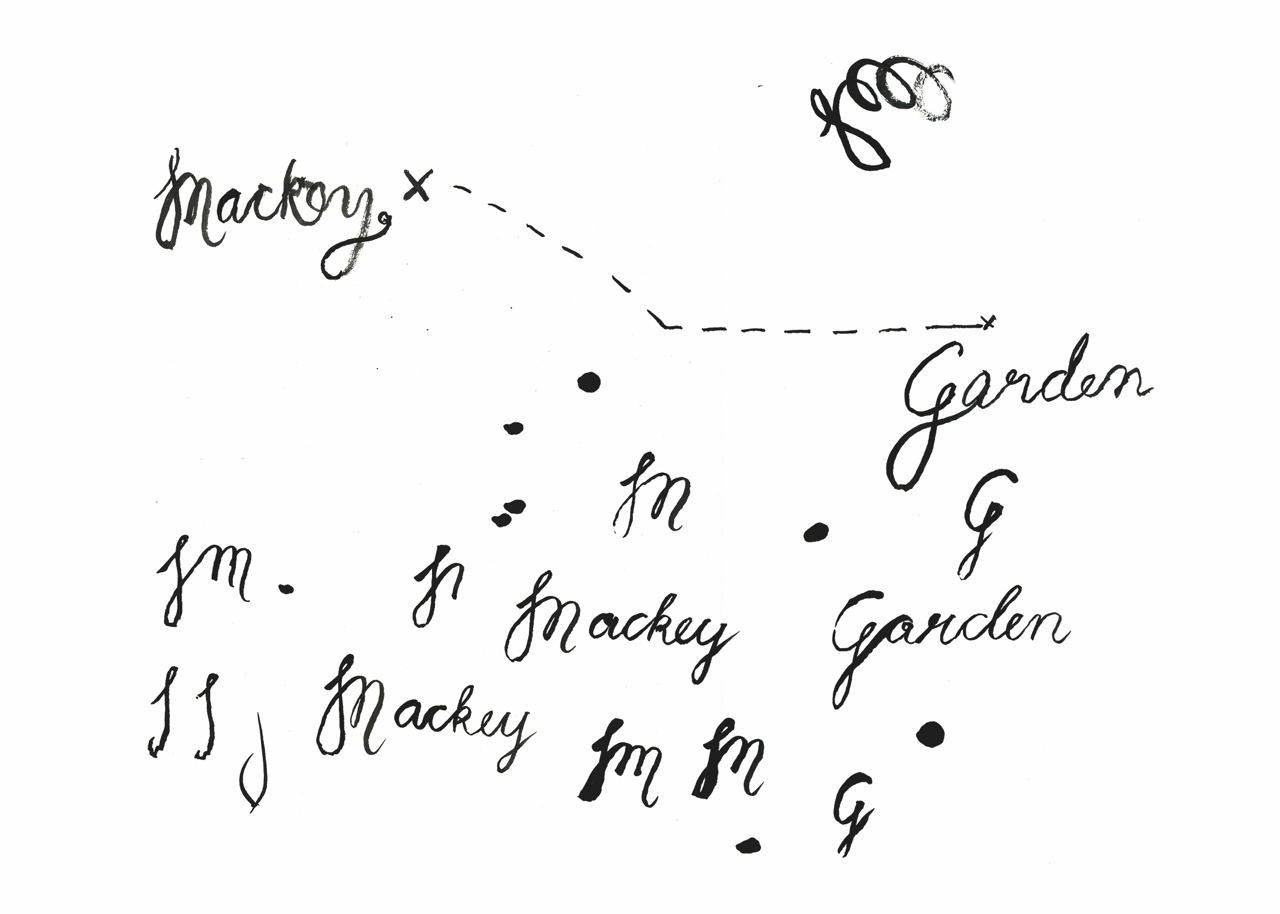 Mackey. x
x
Garden
M
G
M.
Mackey
Garden
Mackey
M M
G